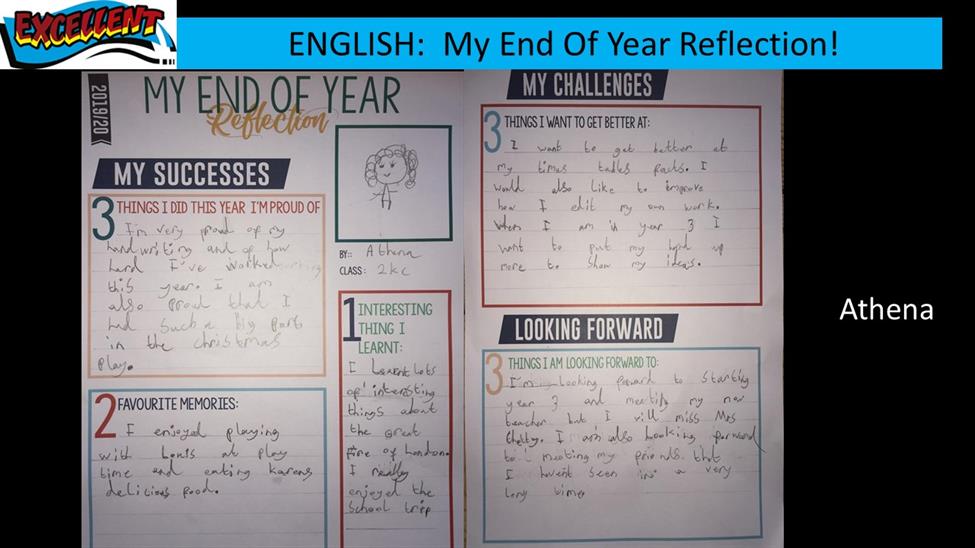 EXCELLENT
ENGLISH: My End Of Year Reflection!
2019/20
MY END OF YEAR
Reflection
MY SUCCESSES
3 THINGS I DID THIS YEAR I'M PROUD OF
I'm very proud of my
handwriting and of how
hard I've worked
this year. I am
also proud that I
had such a big part
in the christmas
play.
BY: Athena
CLASS: 2KC
2 FAVOURITE MEMORIES:
I enjoyed playing
with Louis at play
time and eating karens
delicious food.
1 INTERESTING
THING I
LEARNT:
I learnt lots
of intersting
things about
the great
fire of london.
I really
enjoyed the
school trip
MY CHALLENGES
3 THINGS I WANT TO GET BETTER AT:
I want to get better at
my times tables facts. I
would also like to improve
how I edit my own work.
When I am in year 3 I
want to put my hand up
more to show my ideas.
LOOKING FORWARD
3 THINGS I AM LOOKING FORWARD TO:
I'm looking forward to starting
year 3 and meeting my new
teacher but I will miss Mrs
Chetty. I am also looking forward
to meeting my friends that
I havent seen in a very
long time
Athena